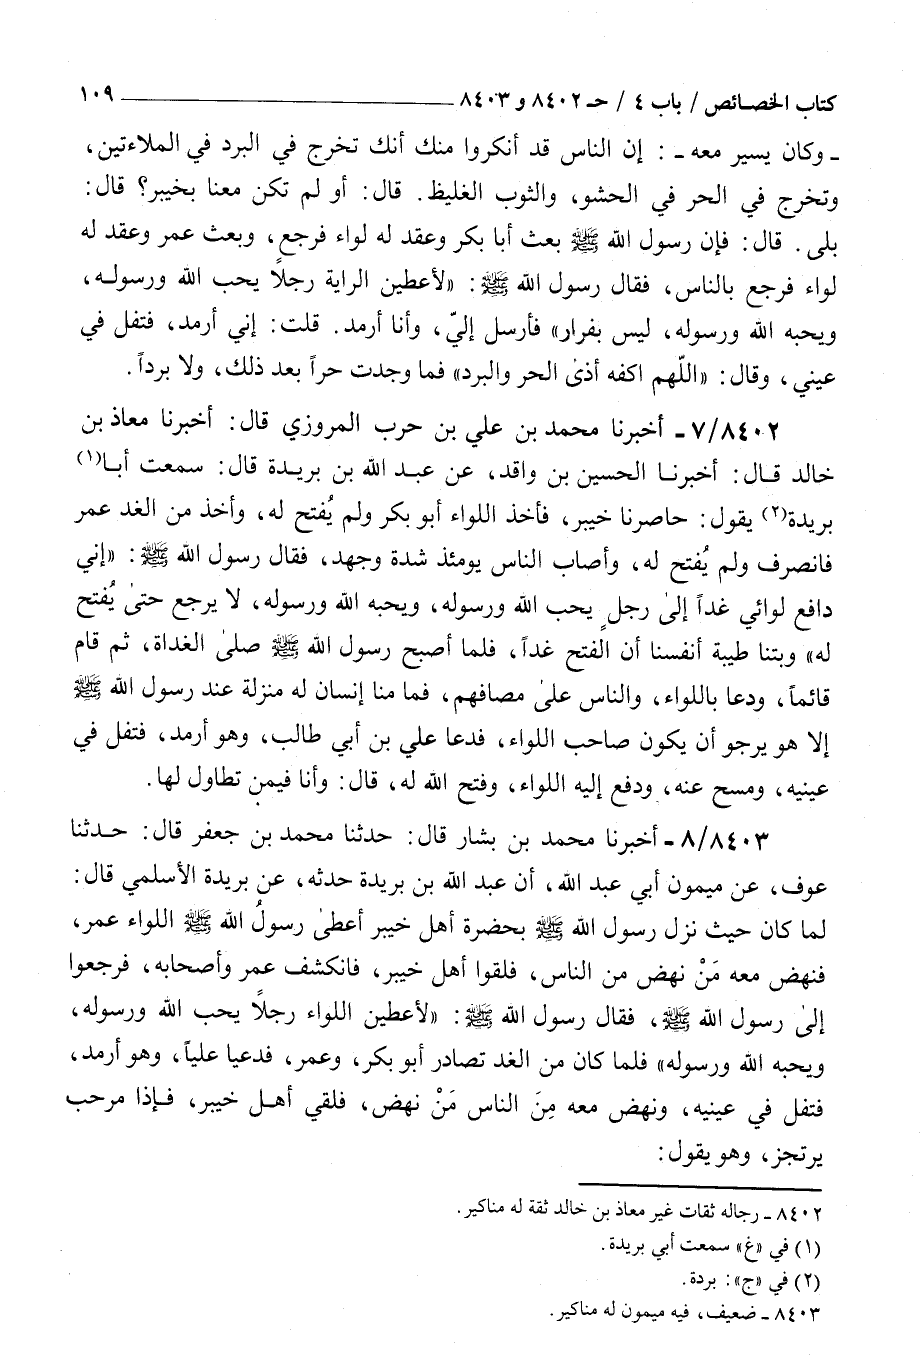 كتاب الخصائص / باب ٤ / حـ ٨٤٠٢ و ٨٤٠٣ ١٠٩
ـ وكان يسير معه ـ : إن الناس قد أنكروا منك أنك تخرج في البرد في الملاءتين،
وتخرج في الحر في الحشو، والثوب الغليظ. قال: أو لم تكن معنا بخيبر؟ قال:
بلى. قال: فإن رسول الله ﷺ بعث أبا بكر وعقد له لواء فرجع، وبعث عمر وعقد له
لواء فرجع بالناس، فقال رسول الله ﷺ: «لأعطين الراية رجلاً يحب الله ورسوله،
ويحبه الله ورسوله، ليس بفرار» فأرسل إليّ، وأنا أرمد. قلت: إني أرمد، فتفل في
عيني، وقال: «اللّهم اكفه أذىٰ الحر والبرد» فما وجدت حراً بعد ذلك، ولا برداً.
٧/٨٤٠٢ ـ أخبرنا محمد بن علي بن حرب المروزي قال: أخبرنا معاذ بن
خالد قال: أخبرنا الحسين بن واقد، عن عبد الله بن بريدة قال: سمعت أبا(١)
بريدة(٢) يقول: حاصرنا خيبر، فأخذ اللواء أبو بكر ولم يُفتح له، وأخذ من الغد عمر
فانصرف ولم يُفتح له، وأصاب الناس يومئذ شدة وجهد، فقال رسول الله ﷺ: «إني
دافع لوائي غداً إلىٰ رجلٍ يحب الله ورسوله، ويحبه الله ورسوله، لا يرجع حتىٰ يُفتح
له» وبتنا طيبة أنفسنا أن الفتح غداً، فلما أصبح رسول الله ﷺ صلىٰ الغداة، ثم قام
قائماً، ودعا باللواء، والناس علىٰ مصافهم، فما منا إنسان له منزلة عند رسول الله ﷺ
إلا هو يرجو أن يكون صاحب اللواء، فدعا علي بن أبي طالب، وهو أرمد، فتفل في
عينيه، ومسح عنه، ودفع إليه اللواء، وفتح الله له، قال: وأنا فيمن تطاول لها.
٨/٨٤٠٣ ـ أخبرنا محمد بن بشار قال: حدثنا محمد بن جعفر قال: حدثنا
عوف، عن ميمون أبي عبد الله، أن عبد الله بن بريدة حدثه، عن بريدة الأسلمي قال:
لما كان حيث نزل رسول الله ﷺ بحضرة أهل خيبر أعطىٰ رسولُ الله ﷺ اللواء عمر،
فنهض معه مَنْ نهض من الناس، فلقوا أهل خيبر، فانكشف عمر وأصحابه، فرجعوا
إلىٰ رسول الله ﷺ، فقال رسول الله ﷺ: «لأعطين اللواء رجلاً يحب الله ورسوله،
ويحبه الله ورسوله» فلما كان من الغد تصادر أبو بكر، وعمر، فدعيا علياً، وهو أرمد،
فتفل في عينيه، ونهض معه مِنَ الناس مَنْ نهض، فلقي أهل خيبر، فإذا مرحب
يرتجز، وهو يقول:
٨٤٠٢ ـ رجاله ثقات غير معاذ بن خالد ثقة له مناكير.
(١) في «غ» سمعت أبي بريدة.
(٢) في «ج»: بردة.
٨٤٠٣ ـ ضعيف، فيه ميمون له مناكير.